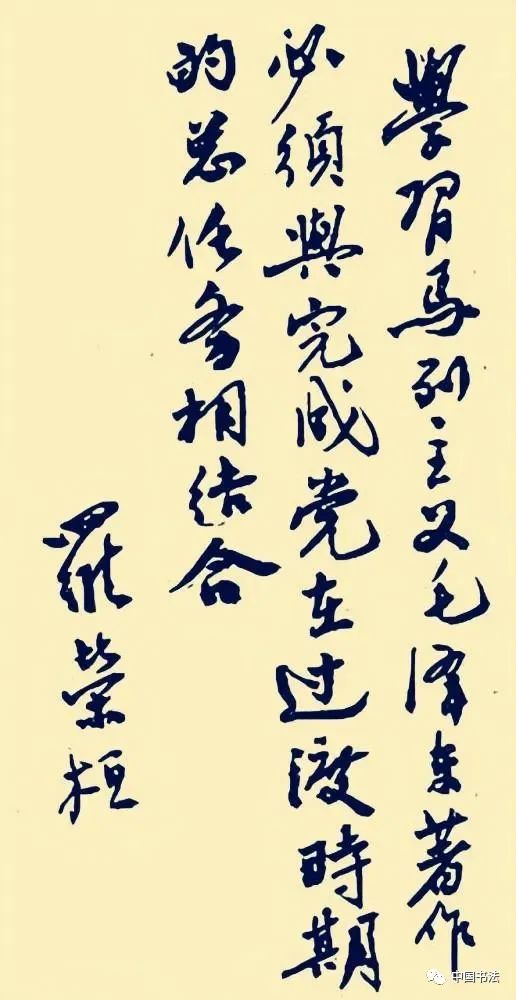 學習馬列主义毛泽东著作
必須與完成党在过渡時期
的总任务相结合
羅榮桓
中国书法